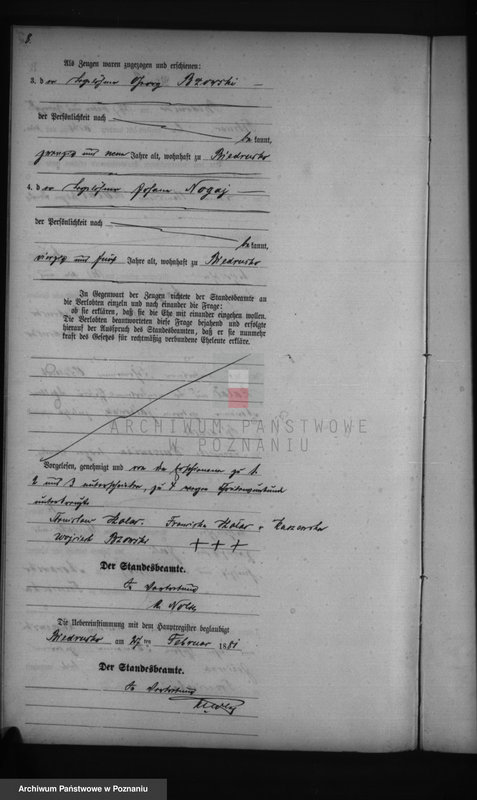 8.
Als Zeugen waren zugezogen und erschienen:
3. der Tagelöhner Bzowski
der Persönlichkeit nach
bekannt,
zwanzig und neun Jahre alt, wohnhaft zu Biedrusko
4. der Tagelöhner Johann Nogaj
der Persönlichkeit nach
bekannt,
vierzig und fünf Jahre alt, wohnhaft zu Biedrusko
In Gegenwart der Zeugen richtete der Standesbeamte an
die Verlobten einzeln und nach einander die Frage:
ob sie erklären, daß sie die Ehe mit einander eingehen wollen.
Die Verlobten beantworteten diese Frage bejahend und erfolgte
hierauf der Ausspruch des Standesbeamten, daß er sie nunmehr
kraft des Gesetzes für rechtmäßig verbundene Eheleute erkläre.
ARCHIWUM PAŃSTWOWE
W POZNANIU
Vorgelesen, genehmigt und von den Erschienenen zu 1.
2 und 3 unterschrieben, zu 4 wegen Schreibensunkunde
unterkreuzt
Stanislaw Szalar. Franciska Szalar
Wojciech Bzowski +++
Der Standesbeamte.
In Vertretung
Nolde
Die Uebereinstimmung mit dem Hauptregister beglaubigt
Biedrusko am 27ten Februar 1881
Der Standesbeamte.
In Vertretung
Archiwum Państwowe w Poznaniu